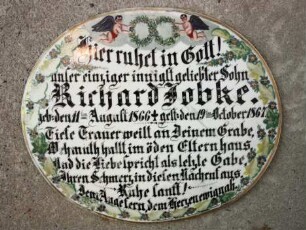 Hier ruhet in Gott!
unser einziger innigst geliebter Sohn
Richard Jobke.
geb. den 11ten August 1866 † gest. den 19ten October 1867.
Tiefe Trauer weilt an Deinem Grabe,
Wehmuth hallt im öden Elternhaus,
Und die Liebe spricht als letzte Gabe,
Ihren Schmerz in diesen Nachruf aus.
Ruhe sanft!
Dem Auge fern, dem Herzen ewig nah.